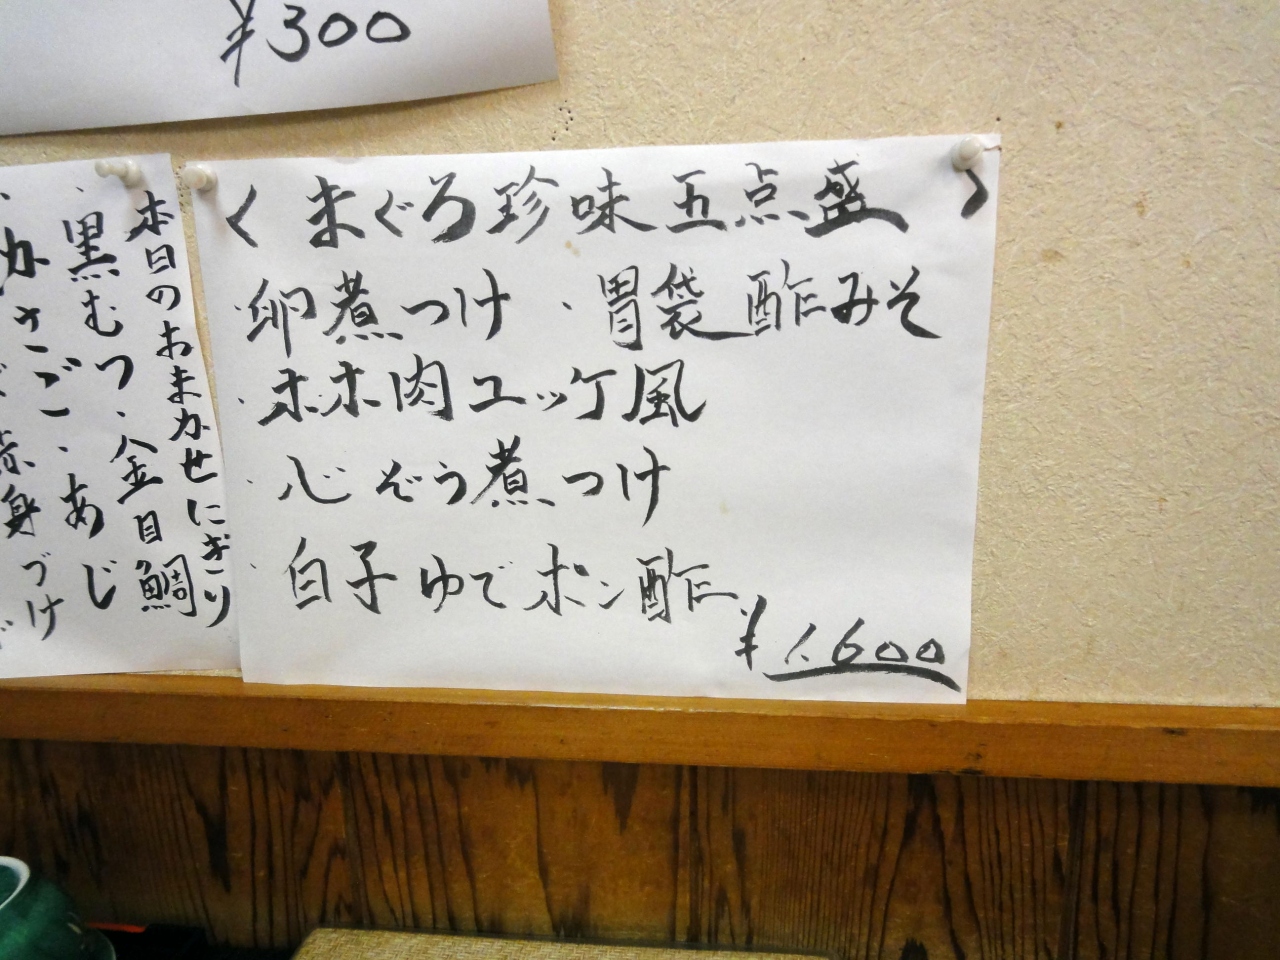 ¥300
〈まぐろ珍味五点盛〉
・卵煮つけ ・胃袋酢みそ
・ホホ肉ユッケ風
・心ぞう煮つけ
・白子ゆでポン酢
¥1,600
本日のおまかせにぎり
・黒むつ・金目鯛
かさご・あじ
赤身づけ